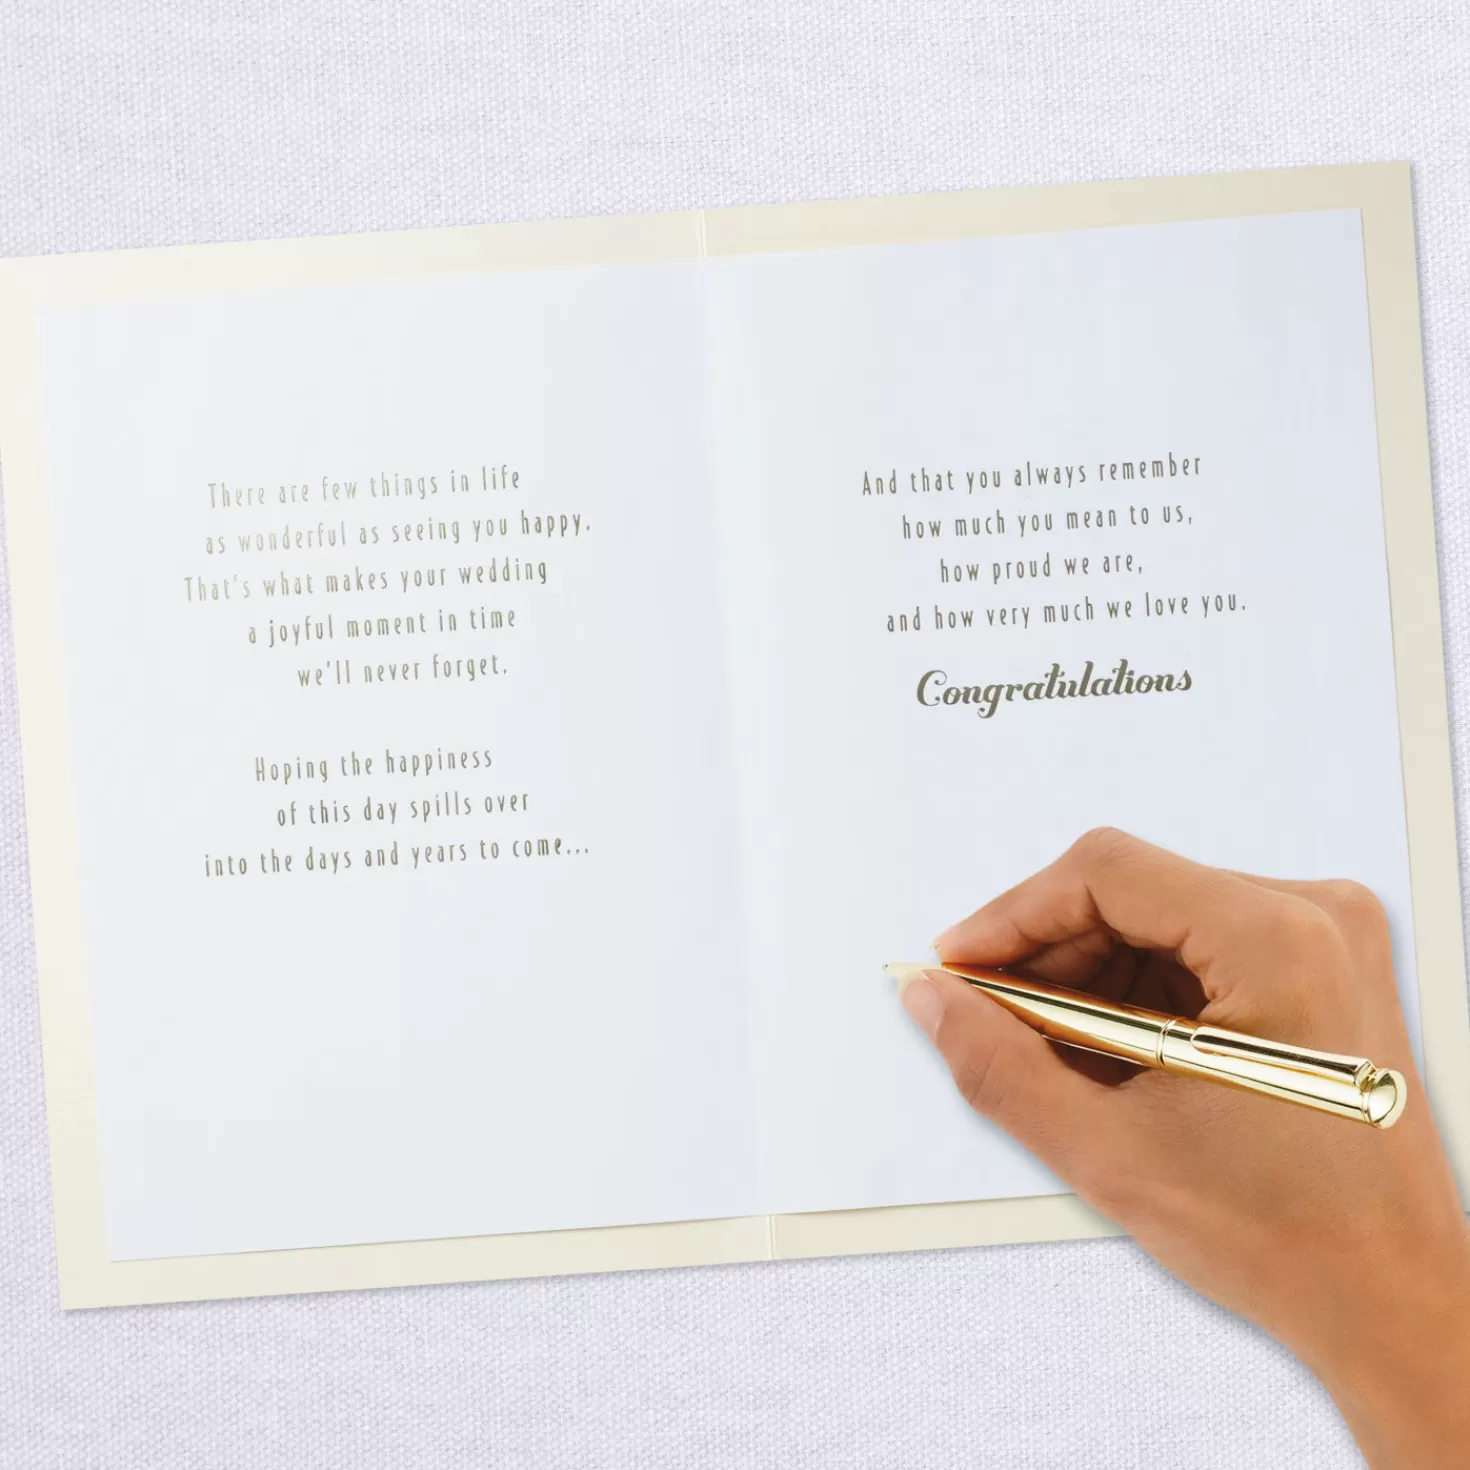 There are few things in life
as wonderful as seeing you happy.
That's what makes your wedding
a joyful moment in time
we'll never forget.
Hoping the happiness
of this day spills over
into the days and years to come...
And that you always remember
how much you mean to us,
how proud we are,
and how very much we love you.
Congratulations